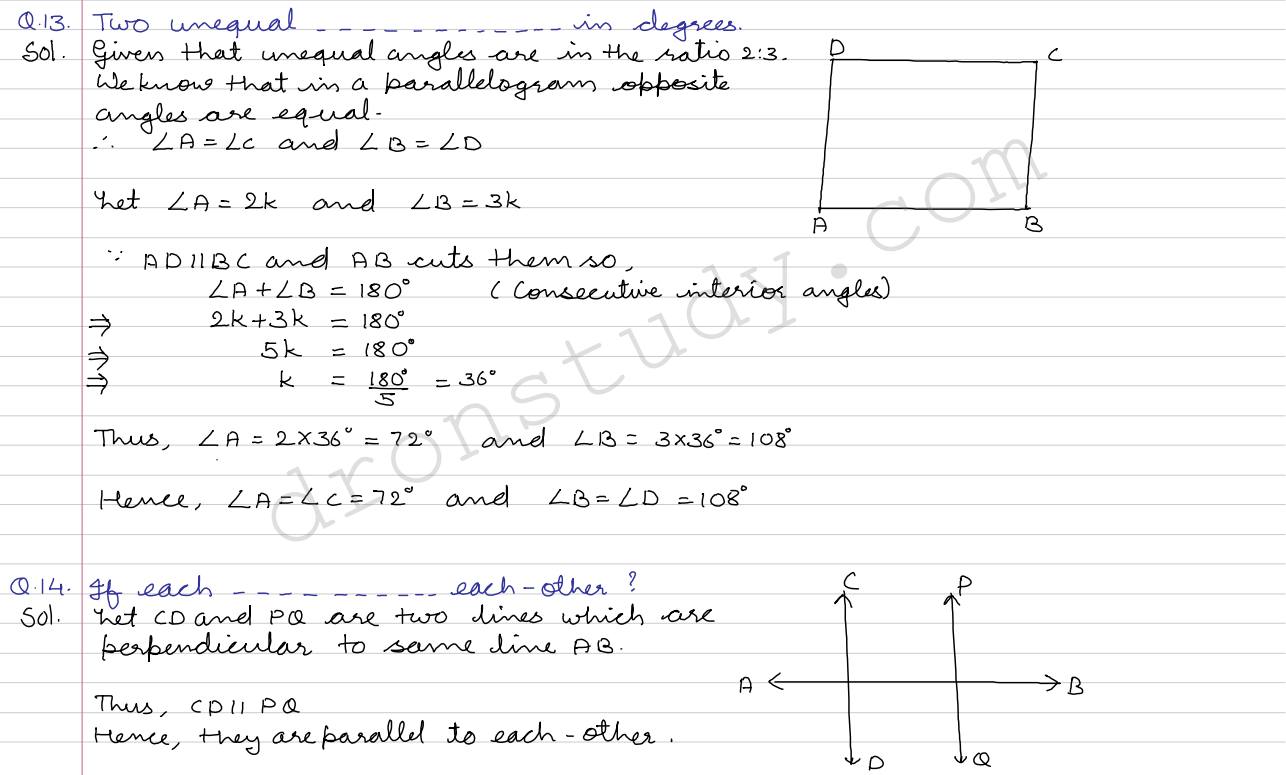 Q.13. Two unequal ------------ in degrees.
Sol. Given that unequal angles are in the ratio 2:3.
We know that in a parallelogram opposite
angles are equal.
∴ ∠A = ∠C and ∠B = ∠D
Let ∠A = 2k and ∠B = 3k
∵ AD||BC and AB cuts them so,
∠A+∠B = 180° (Consecutive interior angles)
⇒ 2k+3k = 180°
⇒ 5k = 180°
⇒ k = 180°/5 = 36°
Thus, ∠A = 2×36° = 72° and ∠B = 3×36° = 108°
Hence, ∠A = ∠C = 72° and ∠B = ∠D = 108°
D C
A B
Q.14. If each ----------- each-other ?
Sol. Let CD and PQ are two lines which are
perpendicular to same line AB.
Thus, CD || PQ
Hence, they are parallel to each-other.
C P
A B
D Q
dronstudy.com